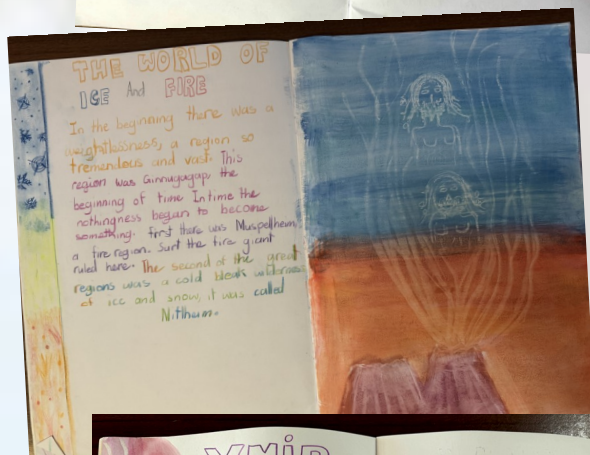 THE WORLD OF
ICE And FIRE
In the beginning there was a
weightlessness, a region so
tremendous and vast. This
region was Ginnugagap, the
beginning of time In time the
nothingness began to become
something. first there was Muspellheim,
a fire region. Surt the fire giant
ruled here. The second of the great
regions was a cold bleak wilderness
of ice and snow, it was called
Niflheim.
YMiR